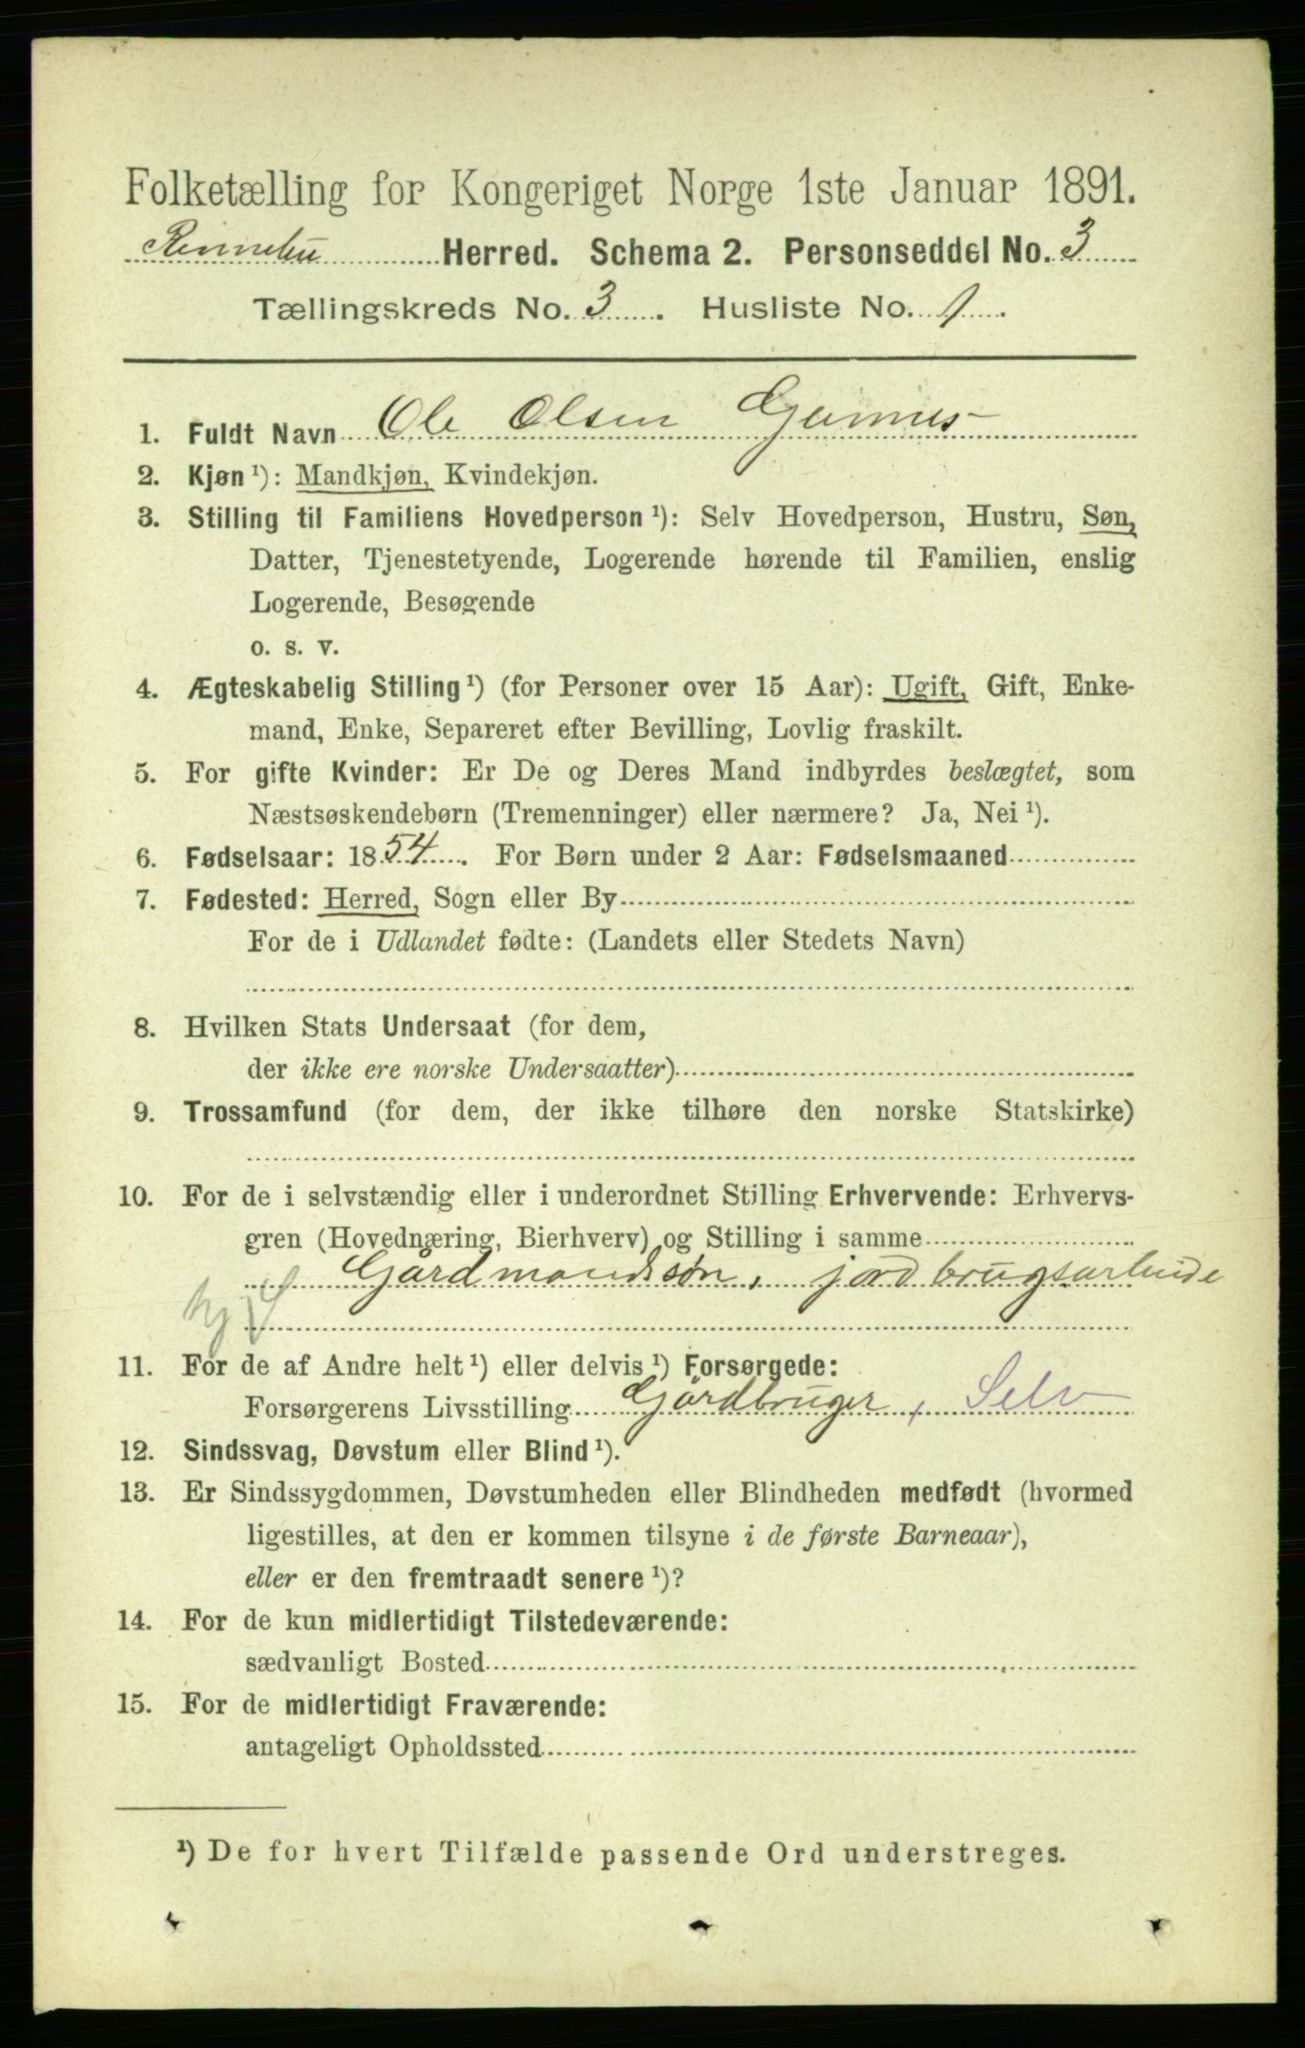 Folketælling for Kongeriget Norge 1ste Januar 1891.
Rennebu Herred. Schema 2. Personseddel No. 3
Tællingskreds No. 3. Husliste No. 1.
1. Fuldt Navn Ole Olsen Gunnes
2. Kjøn ¹): Mandkjøn, Kvindekjøn.
3. Stilling til Familiens Hovedperson ¹): Selv Hovedperson, Hustru, Søn,
Datter, Tjenestetyende, Logerende hørende til Familien, enslig
Logerende, Besøgende
o. s. v.
4. Ægteskabelig Stilling ¹) (for Personer over 15 Aar): Ugift, Gift, Enke-
mand, Enke, Separeret efter Bevilling, Lovlig fraskilt.
5. For gifte Kvinder: Er De og Deres Mand indbyrdes beslægtet, som
Næstsøskendebørn (Tremenninger) eller nærmere? Ja, Nei ¹).
6. Fødselsaar: 1854. For Børn under 2 Aar: Fødselsmaaned
7. Fødested: Herred, Sogn eller By
For de i Udlandet fødte: (Landets eller Stedets Navn)
8. Hvilken Stats Undersaat (for dem,
der ikke ere norske Undersaatter)
9. Trossamfund (for dem, der ikke tilhøre den norske Statskirke)
10. For de i selvstændig eller i underordnet Stilling Erhvervende: Erhvervs-
gren (Hovednæring, Bierhverv) og Stilling i samme
Gårdmandssøn, jordbrugsarbeide
11. For de af Andre helt ¹) eller delvis ¹) Forsørgede:
Forsørgerens Livsstilling Gårdbruger, Selv
12. Sindssvag, Døvstum eller Blind ¹).
13. Er Sindssygdommen, Døvstumheden eller Blindheden medfødt (hvormed
ligestilles, at den er kommen tilsyne i de første Barneaar),
eller er den fremtraadt senere ¹)?
14. For de kun midlertidigt Tilstedeværende:
sædvanligt Bosted
15. For de midlertidigt Fraværende:
antageligt Opholdssted
¹) De for hvert Tilfælde passende Ord understreges.